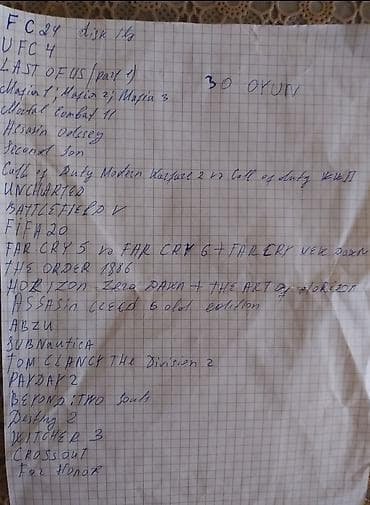 FC 24 disk ilə
UFC 4
LAST OF US (part 1)
30 OYUN
Mafia 1, Mafia 2, Mafia 3
Mortal Combat 11
Assasin Odssey
Second Son
Call of Duty Modern Warfare 2 və Call of duty WWII
UNCHARTED
BATTLEFIELD V
FIFA 20
FAR CRY 5 və FAR CRY 6 + FAR CRY NEW DAWN
THE ORDER 1886
HORIZON Zero DAWN + THE ART OF HORIZON
ASSASIN CREED 6 old edition
ABZU
SUBNAUTICA
TOM CLANCY THE Division 2
PAYDAY 2
BEYOND: TWO Souls
Destiny 2
WITCHER 3
CROSSOUT
For Honor